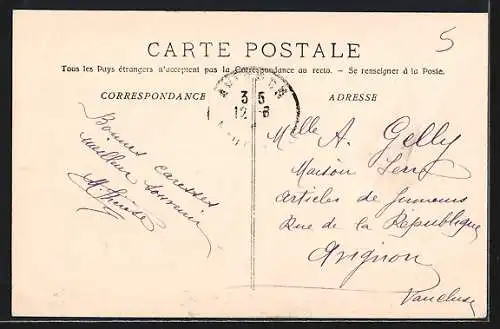 5
CARTE POSTALE
Tous les Pays étrangers n'acceptent pas la Correspondance au recto. — Se renseigner à la Poste.
CORRESPONDANCE
ADRESSE
3 5
12 -6
Bonnes caresses
meilleur souvenir
Mlle A. Gelly
Maison
Articles de
Rue de la République
Avignon
Vaucluse